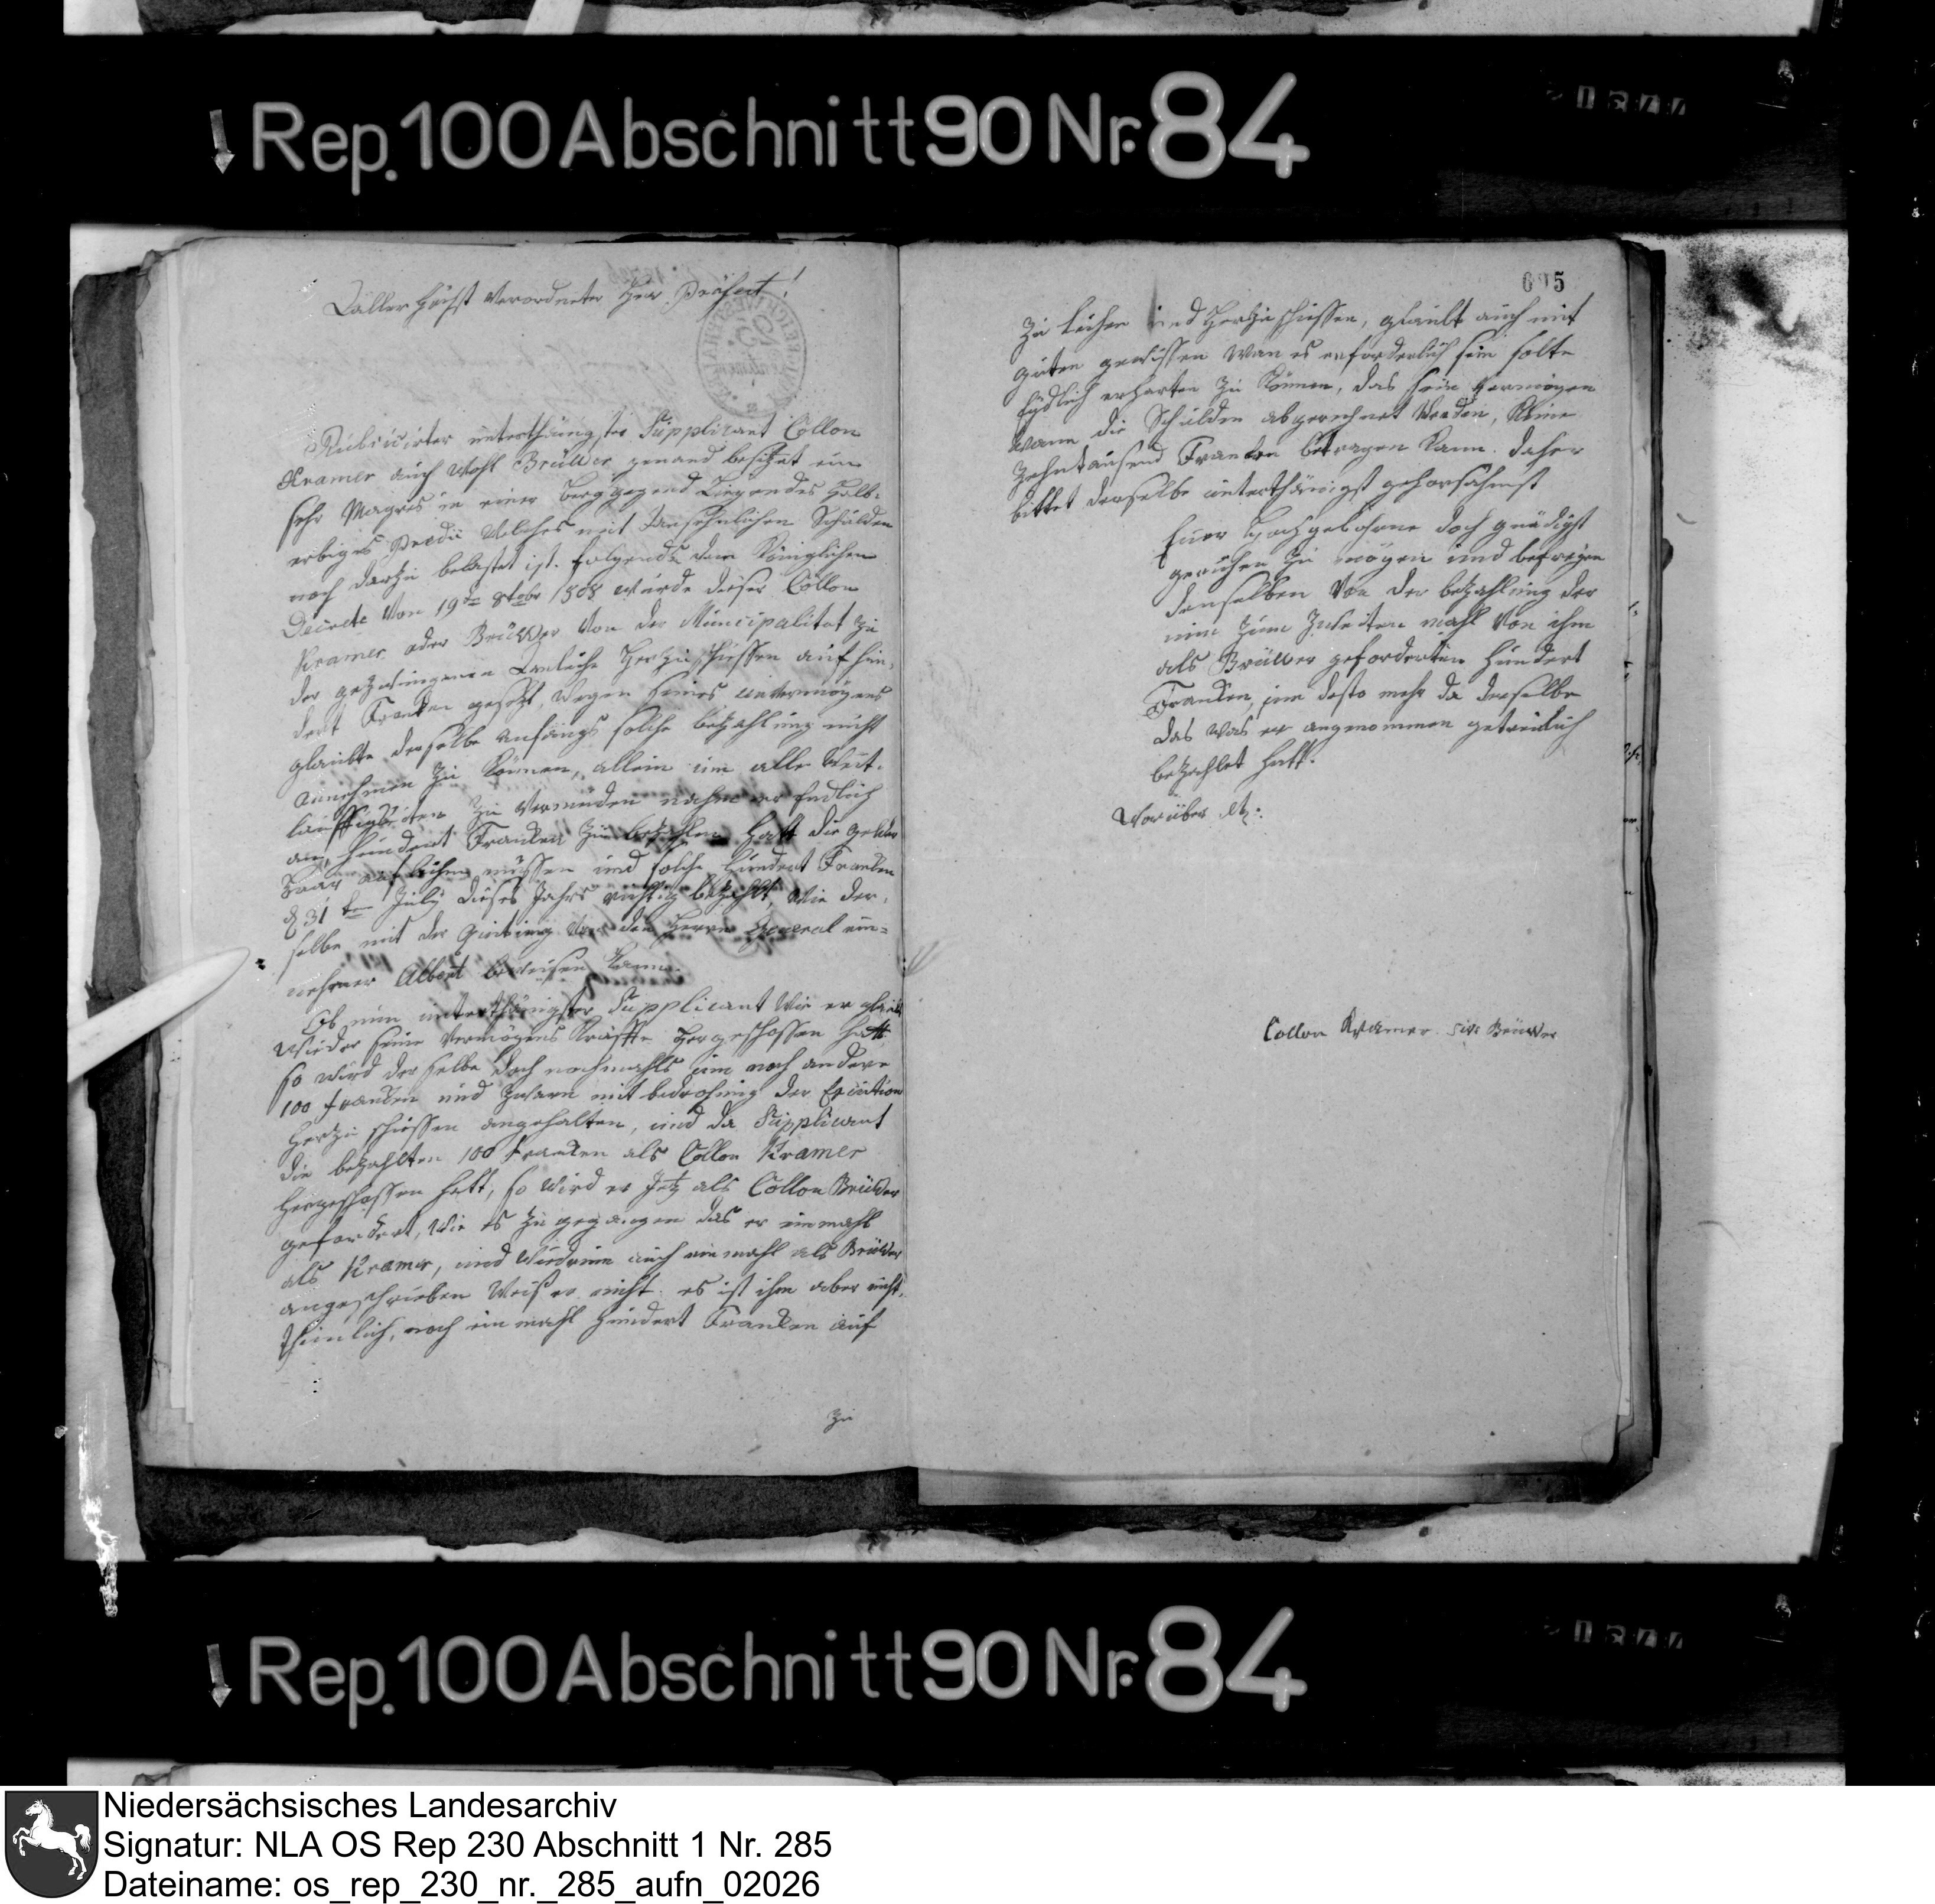 Rep. 100 Abschnitt 90 Nr. 84
Zu allerhöchst verordneter Herr Präfect!
Rubricirter unterthänigster Supplicant Collon
Kramer auch wohl Brüwer genand besitzet ein
sehr Magres in einer berggegend Liegendes Halb-
erbiges Predii welches mit ansehnlichen Schulden
noch darzu belastet ist. folgends dem Königlichen
Decrete von 19ten 8tobr 1808 wurde dieser Collon
Kramer oder Brüwer von der Municipalitat zu
der gezwungenen Anleihe Herzu schiessen auf hun-
dert Franken gesetzt, wegen seines unvermögens
glaubte derselbe anfangs solche bezahlung nicht
annehmen zu können, allein um alle Weit-
läuffigkeiten zu vermeiden nahm er endlich
an, hundert Franken zu bezahlen hatt die gelder
zwar aufleihen müssen und solche hundert Franken
d 31ten July dieses Jahrs richtig bezahlt, wie der-
selbe mit der Quitung von den Herrn General ein-
nehmer Albert beweisen kann.
Ob nun unterthänigster Supplicant wie er glaubt
wieder seine vermögens Kräffte hergeschossen hatt
so wird der selbe doch nochmahls um noch andere
100 franken und zwarn mit bedrohung der Execution
herzu schiessen angehalten, und da Supplicant
die bezahlten 100 franken als Collon Kramer
hergeschossen hatt, so wird er Jetz als Collon Brüwer
gefordert, wie es zu gegangen das er einmahl
als Kramer, und wiedrum auch einmahl als Brüwer
angeschrieben weis er nicht. es ist ihm aber nicht
thunlich, noch ein mahl hundert Franken auf
zu
695
zu leihen und Herzu schiessen, glaubt auch mit
guten gewissen wan es erforderlich sein solte
Eydlich erharten zu können, das sein vermögen
wann die Schulden abgerechnet werden, keine
zehntausend Franken betragen kann. daher
bittet derselbe unterthänigst gehorsahmst
Euer Hochgebohrne doch gnädigst
geruhen zu mögen und befreyen
denselben von der bezahlung der
nun zum zweiten mahl von ihm
als Brüwer geforderten hundert
Franken, um desto mehr da derselbe
das was er angenommen getreulich
bezahlet hatt.
Worüber etz:.
Collon Kramer sive Brüwer
Rep. 100 Abschnitt 90 Nr. 84
Niedersächsisches Landesarchiv
Signatur: NLA OS Rep 230 Abschnitt 1 Nr. 285
Dateiname: os_rep_230_nr._285_aufn_02026